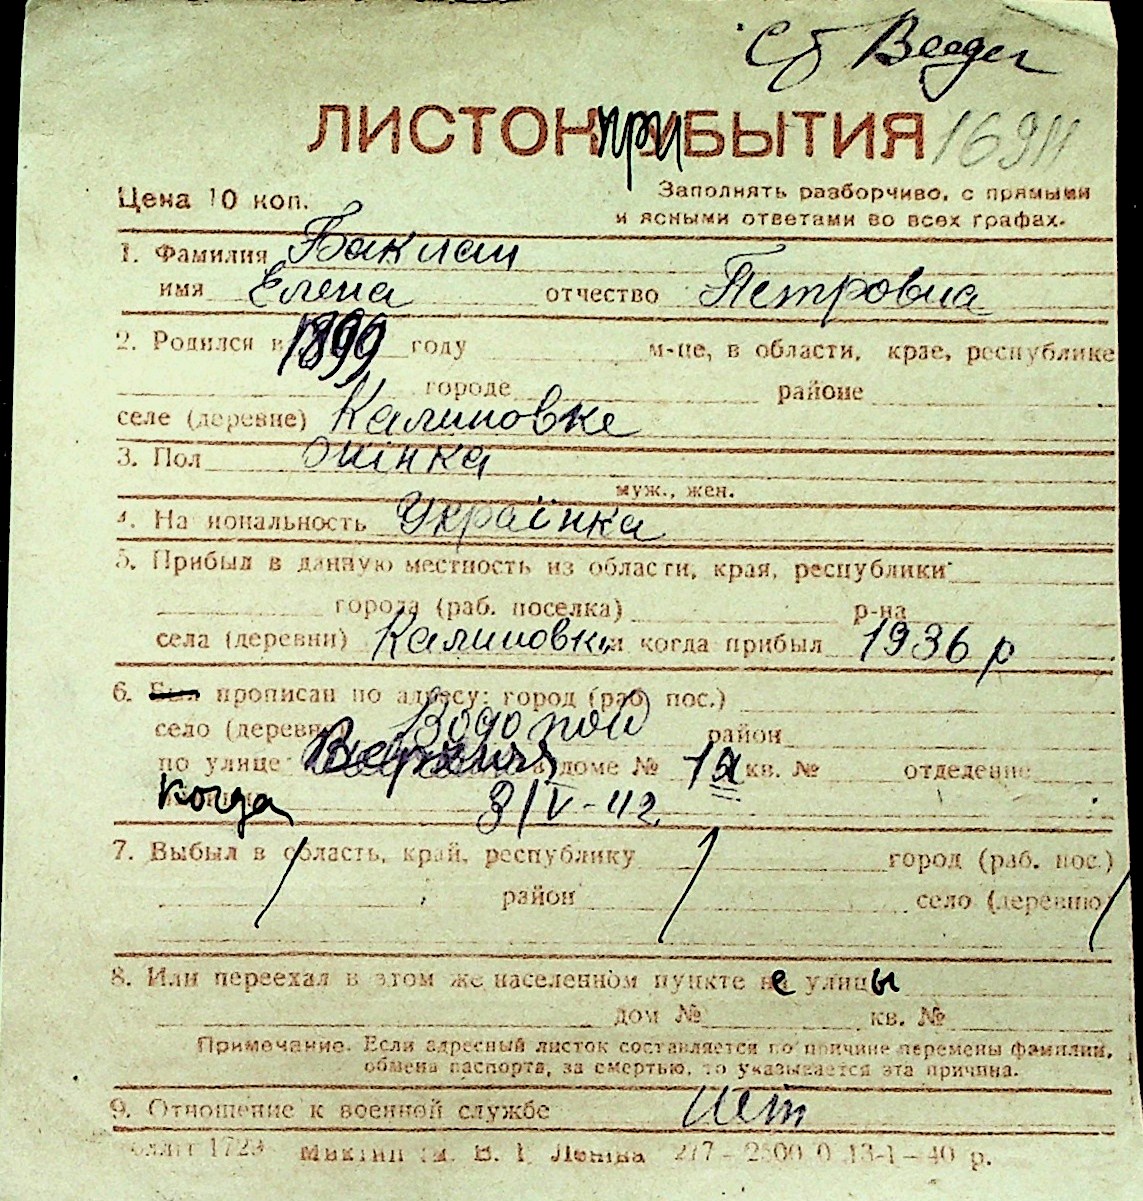 Сб Веедег
ЛИСТОК ПРИБЫТИЯ 16911
Цена 10 коп.
Заполнять разборчиво, с прямыми
и ясными ответами во всех графах.
1. Фамилия Баклан
имя Елена отчество Петровна
2. Родился в 1899 году м-це, в области, крае, республике
городе районе
селе (деревне) Калиновке
3. Пол жінка
муж., жен.
4. Национальность Українка
5. Прибыл в данную местность из области, края, республики
города (раб. поселка) р-на
села (деревни) Калиновки и когда прибыл 1936 р
6. Был прописан по адресу: город (раб. пос.)
село (деревня) Водопой район
по улице доме № 1а кв. № отделение
Когда 3/IV-42
7. Выбыл в область, край, республику город (раб. пос.)
район село (деревню)
8. Или переехал в этом же населенном пункте не улицы
дом № кв. №
Примечание. Если адресный листок составляется по причине перемены фамилии,
обмена паспорта, за смертью, то указывается эта причина.
9. Отношение к военной службе Нет
1729 ім. В. І. Леніна 277 - 2500 0 13-1-40 р.